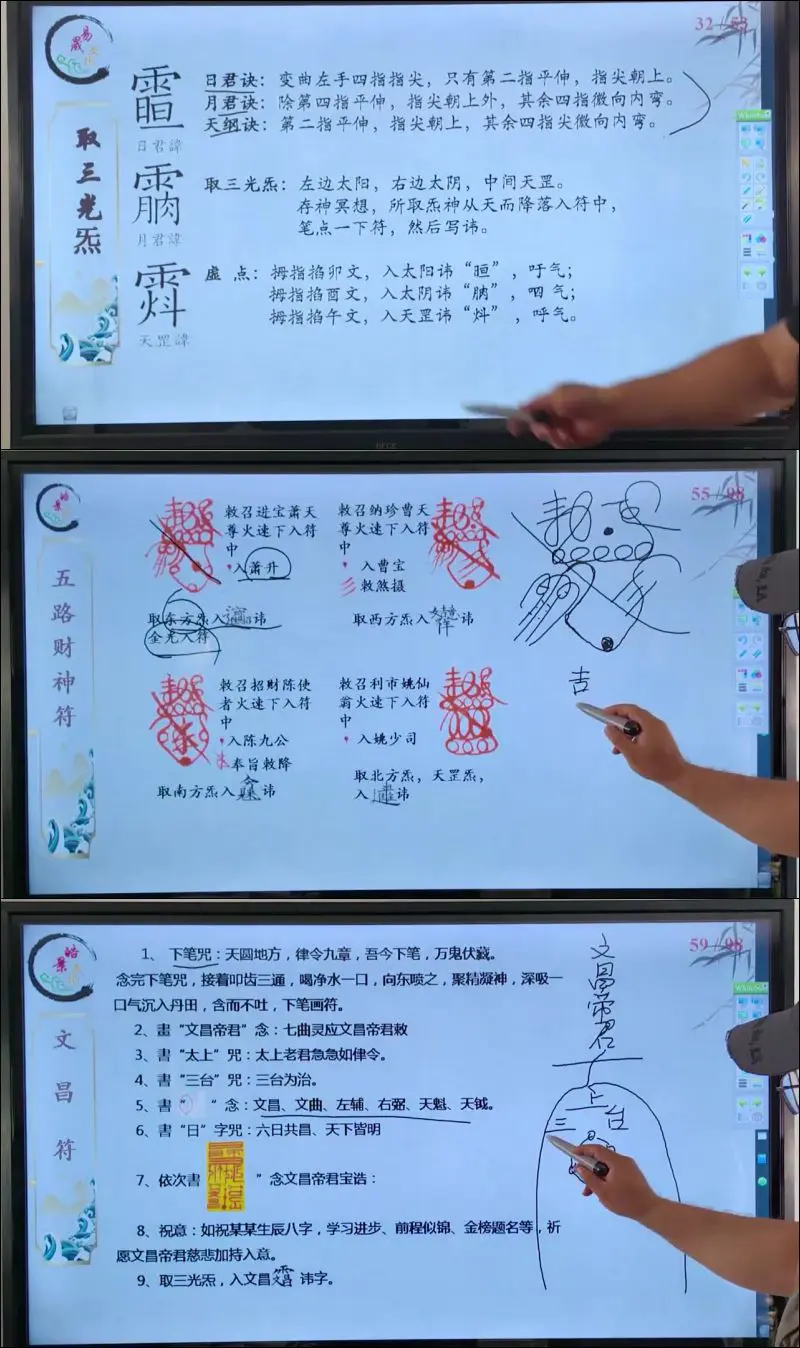 32 / 53
取三光炁
日君诀：变曲左手四指指尖，只有第二指平伸，指尖朝上。
月君诀：除第四指平伸，指尖朝上外，其余四指微向内弯。
天纲诀：第二指平伸，指尖朝上，其余四指尖微向内弯。
日君諱
取三光炁：左边太阳，右边太阴，中间天罡。
存神冥想，所取炁神从天而降落入符中，
笔点一下符，然后写讳。
月君諱
虚 点：拇指掐卯文，入太阳讳“晅”，吁气；
拇指掐酉文，入太阴讳“朒”，呬气；
拇指掐午文，入天罡讳“炓”，呼气。
天罡諱
皓景
55 / 98
五路财神符
敕召进宝萧天
尊火速下入符
中
入萧升
取东方炁入讳
金光入符
敕召纳珍曹天
尊火速下入符
中
入曹宝
敕煞摄
取西方炁入讳
吉
敕召招财陈使
者火速下入符
中
入陈九公
奉旨敕降
取南方炁入讳
敕召利市姚仙
翁火速下入符
中
入姚少司
取北方炁，天罡炁，
入讳
皓景
59 / 98
文昌符
1、下笔咒：天圆地方，律令九章，吾今下笔，万鬼伏藏。
念完下笔咒，接着叩齿三通，喝净水一口，向东喷之，聚精凝神，深吸一
口气沉入丹田，含而不吐，下笔画符。
2、畫“文昌帝君”念：七曲灵应文昌帝君敕
3、書“太上”咒：太上老君急急如律令。
4、書“三台”咒：三台为治。
5、書“ ”念：文昌、文曲、左辅、右弼、天魁、天钺。
6、書“日”字咒：六日共昌、天下皆明
7、依次書 ”念文昌帝君宝诰：
8、祝意：如祝某某生辰八字，学习进步、前程似锦、金榜题名等，祈
愿文昌帝君慈悲加持入意。
9、取三光炁，入文昌 讳字。
文昌帝君
上
三台